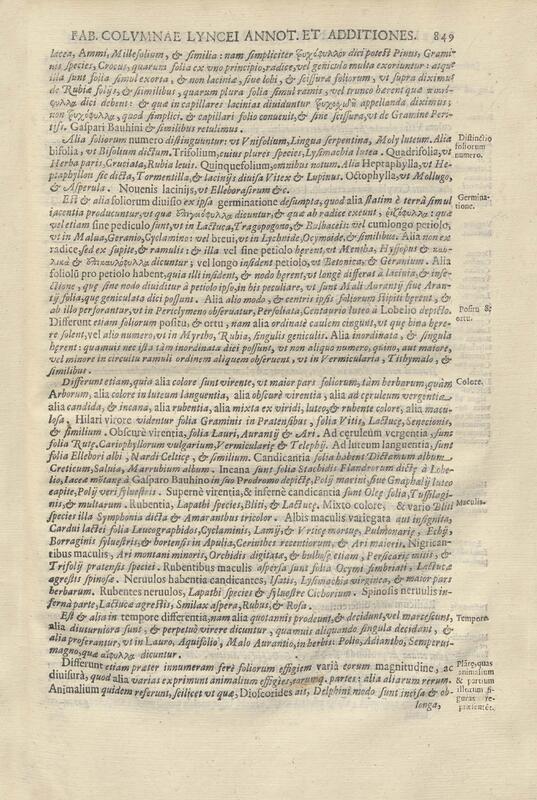 FAB. COLVMNAE LYNCEI ANNOT. ET ADDITIONES. 849
lacea, Ammi, Millefolium, & similia: nam simpliciter dici potest Pinus, Grami-
nis species, Crocus, quarum folia ex vno principio, radice, vel geniculo multa exoriuntur: atque
illa sunt folia simul exorta, & non laciniæ, siue lobi, & scissuræ foliorum, vt supra diximus
de Rubiæ folijs, & similibus, quarum plura folia simul ramis, vel trunco hærent quæ
dici debent: & quæ in capillares lacinias diuiduntur appellanda diximus;
non quod simplici, & capillari folio conuenit, & sine scissura, vt de Gramine Per-
siss. Gaspari Bauhini & similibus retulimus.
Alia foliorum numero distinguuntur: vt Vnifolium, Lingua serpentina, Moly luteum. Alia
bifolia, vt Bifolium dictum. Trifolium, cuius plures species, Lysimachia lutea. Quadrifolia, vt
Herba paris, Cruciata, Rubia leuis. Quinquefolium, omnibus notum. Alia Heptaphylla, vt He-
ptaphyllon sic dicta, Tormentilla, & lacinijs diuisa Vitex & Lupinus. Octophylla, vt Mollugo,
& Asperula. Nouenis lacinijs, vt Elleborasirum &c.
Distinctio
foliorum
numero.
Est & alia foliorum diuisio ex ipsa germinatione desumpta, quod alia statim è terrâ simul
iacentia producuntur, vt quæ dicuntur, & quæ ab radice exeunt, : quæ
vel etiam sine pediculo sunt, vt in Lactuca, Tragopogono, & Bulbaceis: vel cum longo petiolo,
vt in Malua, Geranio, Cyclamino: vel breui, vt in Lychnide, Ocymoide, & similibus. Alia non ex
radice, sed ex stipite, & ramulis: & illa vel sine petiolo hærent, vt Mentha, Hyssopus &
& dicuntur; vel longo insident petiolo, vt Betonica, & Geranium. Alia
foliolũ pro petiolo habent, quia illi insident, & nodo hærent, vt longè differat à lacinia, & inse-
ctione, quæ sine nodo diuiditur à petiolo ipso, in his peculiare, vt sunt Mali Aurantij siue Aran-
tij folia, quæ geniculata dici possunt. Alia alio modo, & centris ipsis foliorum stipiti hærent, &
ab illo perforantur, vt in Periclymeno obseruatur, Perfoliata, Centaurio luteo à Lobelio depicto.
Germina-
tione.
Differunt etiam foliorum positu, & ortu, nam alia ordinatè caulem cingunt, vt quæ bina hære-
re solent, vel alio numero, vt in Myrtho, Rubia, singulis geniculis. Alia inordinata, & singula
hærent: quamuis nec ista tàm inordinata dici possunt, vt non aliquo numero, quino, aut maiore,
vel minore in circuitu ramuli ordinem aliquem obseruent, vt in Vermicularia, Tithymalo, &
similibus.
Positu &
ortu.
Differunt etiam, quia alia colore sunt virente, vt maior pars foliorum, tàm herbarum, quàm
Arborum, alia colore in luteum languentia, alia obscurè virentia, alia ad ceruleum vergentia
alia candida, & incana, alia rubentia, alia mixta ex viridi, luteo, & rubente colore, alia macu-
losa. Hilari virore videntur folia Graminis in Pratensibus, folia Vitis, Lactucę, Senecionis,
& similium. Obscurè virentia, folia Lauri, Aurantij & Ari. Ad ceruleum vergentia, sunt
folia Rutę, Cariophyllorum vulgarium, Vermicularię & Telephij. Ad luteum languentia, sunt
folia Ellebori albi, Nardi Celticę, & similium. Candicantia folia habent Dictamum album
Creticum, Saluia, Marrubium album. Incana sunt folia Stachidis Flandrorum dictę à Lobe-
lio, Iaceæ mõtanę à Gasparo Bauhino in suo Prodromo depictę, Polij marini, siue Gnaphalij luteo
capite, Polij veri syluestris. Supernè virentia, & infernè candicantia sunt Oleę folia, Tussilagi-
nis, & multarum. Rubentia, Lapathi species, Bliti, & Lactucę. Mixto colore, & vario Bliti
species illa Symphonia dicta & Amaranthus tricolor. Albis maculis variegata aut insignita,
Cardui lactei folia Leucographidos, Cyclaminis, Lamij, & Vrticę mortuę, Pulmonarię, Echij,
Borraginis syluestris, & hortensis in Apulia, Cerinthes recentiorum, & Ari maioris. Nigrican-
tibus maculis, Ari montani minoris, Orchidis digitatę, & bulbosę etiam, Persicarię mitis, &
Trifolij pratensis species. Rubentibus maculis aspersa sunt folia Ocymi fimbriati, Lactucæ
agrestis spinosæ. Neruulos habentia candicantes, Isatis, Lysimachia virginea, & maior pars
herbarum. Rubentes neruulos, Lapathi species & syluestre Cichorium. Spinosis neruulis in-
ferna parte, Lactucæ agrestis, Smilax aspera, Rubus, & Rosa.
Colore.
Maculis.
Est & alia in tempore differentia, nam alia quotannis prodeunt, & decidunt, vel marescunt,
alia diuturniora sunt; & perpetuò virere dicuntur, quamuis aliquando singula decidant, &
alia proferantur, vt in Lauro, Aquifolio, Malo Aurantio, in herbis: Polio, Adiantho, Semperuiuo
magno, quæ dicuntur.
Tempore.
Differunt etiam præter innumeram ferè foliorum effigiem variâ eorum magnitudine, ac
diuisurâ, quod alia varias exprimunt animalium effigies, earumq. partes: alia aliarum rerum.
Animalium quidem referunt, scilicet vt quæ, Dioscorides ait, Delphini modo sunt incisa & ob-
longa,
Plãtę, quas
animalium
& partium
illarum fi-
guras re-
præsentet.